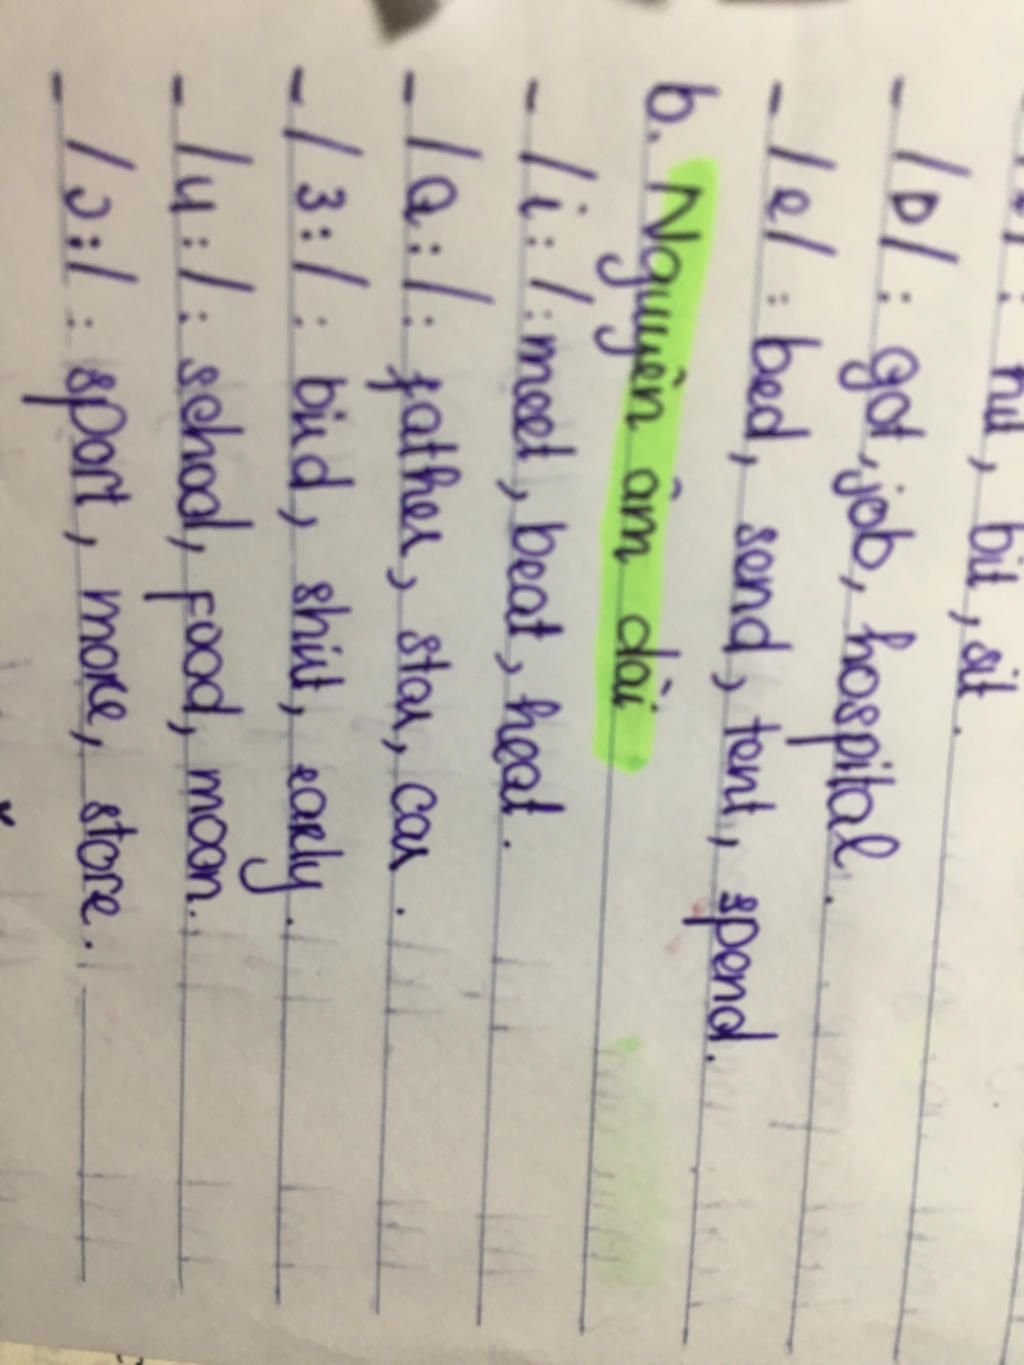 hit, bit, sit.
- /ɒ/ : got, job, hospital.
- /e/ : bed, send, tent, spend.
b. Nguyên âm dài
- /i:/ : meet, beat, heat.
- /ɑ:/ : father, star, car.
- /ɜ:/ : bird, shirt, early.
- /u:/ : school, food, moon.
- /ɔ:/ : sport, more, store.